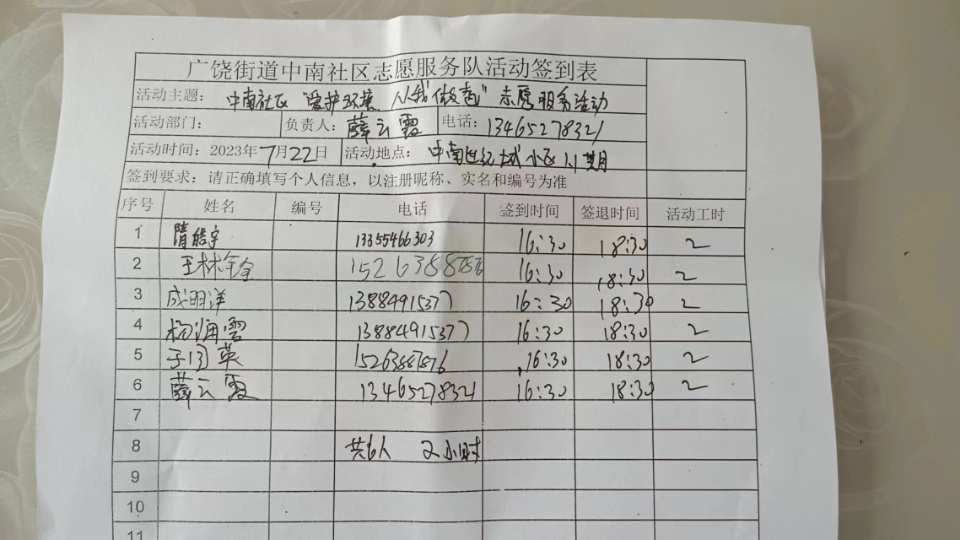 广饶街道中南社区志愿服务队活动签到表
活动主题： 中南社区 "爱护环境 人人我做起" 志愿服务活动
活动部门： 负责人：薛云霞 电话：13465278321
活动时间：2023年7月22日 活动地点：中南世纪城小区 期
签到要求：请正确填写个人信息，以注册昵称、实名和编号为准
序号 姓名 编号 电话 签到时间 签退时间 活动工时
1 隋皓宇 13355466303 16:30 18:30 2
2 王林铨 16:30 18:30 2
3 成明洋 13884915377 16:30 18:30 2
4 杨海霞 13884915377 16:30 18:30 2
5 英 15263887876 16:30 18:30 2
6 薛云霞 13465278321 16:30 18:30 2
7
8 共6人 2小时
9
10
11